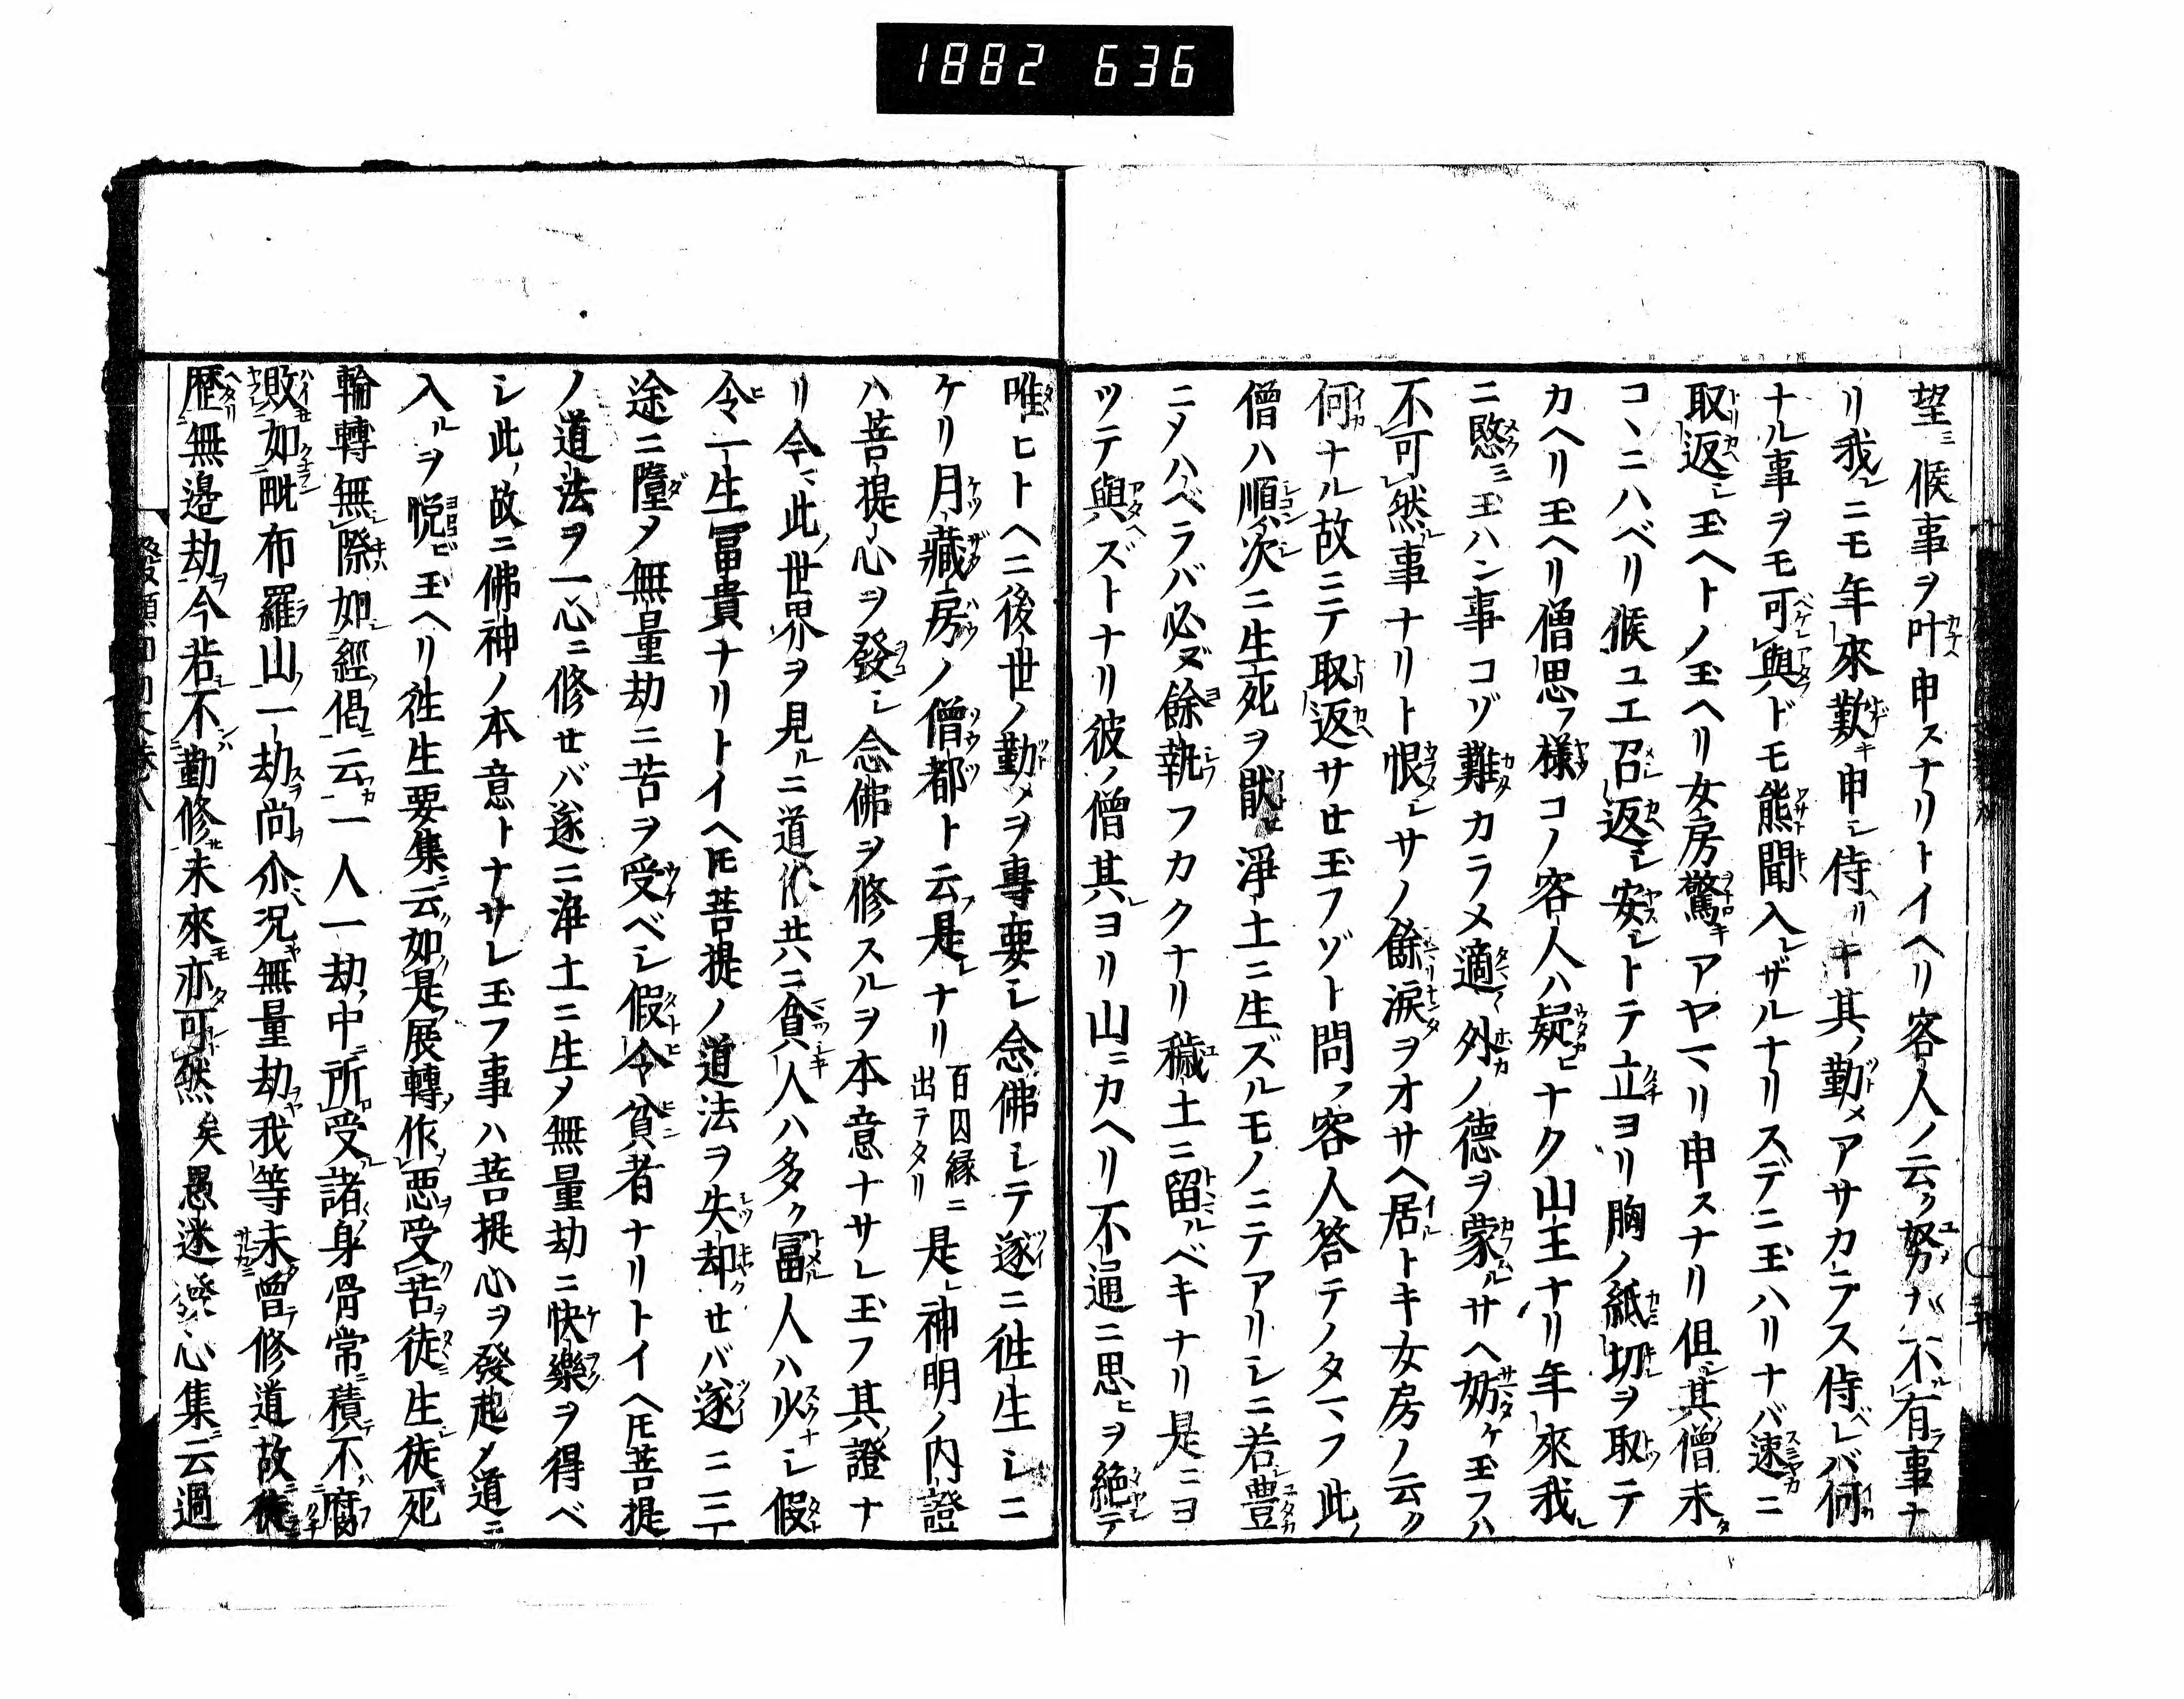 1882 636
望ミ候事ヲ叶申スナリトイヘリ客人ノ云ク努ナ不有事ナ
リ我レニモ年來歎キ申シ侍リキ其ノ勤メアサカラス侍レバ何
ナル事ヲモ可與ドモ熊聞入レザルナリスデニ玉ハリナバ速ニ
取返シ玉ヘトノ玉ヘリ女房驚キアヤマリ申スナリ但シ其僧未タ
コヽニハベリ候ユエ召返シ安シトテ立ヨリ胸ノ紙切ヲ取テ
カヘリ玉ヘリ僧思フ樣コノ客人ハ疑ヒナク山王ナリ年來我レ
ニ愍ミ玉ハン事コソ難カラメ適マ外ノ德ヲ蒙ルサヘ妨ケ玉フハ
不可然ル事ナリト恨シサノ餘リ淚ヲオサヘ居ルトキ女房ノ云ク
何ナル故ニテ取返サセ玉フゾト問フ客人答テノタマフ此ノ
僧ハ順次ニ生死ヲ猒ヒ淨土ニ生ズルモノニテアリシニ若シ豊
ニメハベラバ必ズ餘執フカクナリ穢土ニ留ルベキナリ是ニヨ
ツテ與ヘズトナリ彼ノ僧其レヨリ山ニカヘリ不通ニ思ヒヲ絶テ
唯ヒトヘニ後世ノ勤メヲ專要シ念佛シテ遂ニ徃生シニ
ケリ月藏房ノ僧都ト云フ是レナリ百因縁ニ出テタリ是レ神明ノ内證
ハ菩提心ヲ發シ念佛ヲ修スルヲ本意ナサレ玉フ其ノ證ナ
リ今マ此ノ世界ヲ見ルニ道俗共ニ貧キ人ハ多ク冨ル人ハ少シ假
令ヒ一生冨貴ナリトイヘ𪜈菩提ノ道法ヲ失却セバ遂ニ三
途ニ墮メ無量劫ニ苦ヲ受ベシ假令ヒ貧者ナリトイヘ𪜈菩提
ノ道法ヲ一心ニ修セバ遂ニ淨土ニ生メ無量劫ニ快樂ヲ得ベ
シ此ノ故ニ佛神ノ本意トナサレ玉フ事ハ菩提心ヲ發起メ道ニ
入ルヲ悅ビ玉ヘリ徃生要集ニ云ク如是ノ展轉ノ作レ悪ヲ受ク苦ヲ徒ニ生レ徒ニ死
輪轉無シ際如シ經ノ偈ニ云カ一人一劫ノ中ニ所ロ受ル諸ノ身骨常ニ積テ不ハ腐
敗如毗布羅山ノ一劫スラ尚ヲ尒ハ況ヤ無量劫ヲヤ我等未タ曾テ修道故ニ徒ニ
歷無邊劫ヲ今若シ不ハ勤修セ未來モ亦タ可シ然ル矣愚迷發心集ニ云過